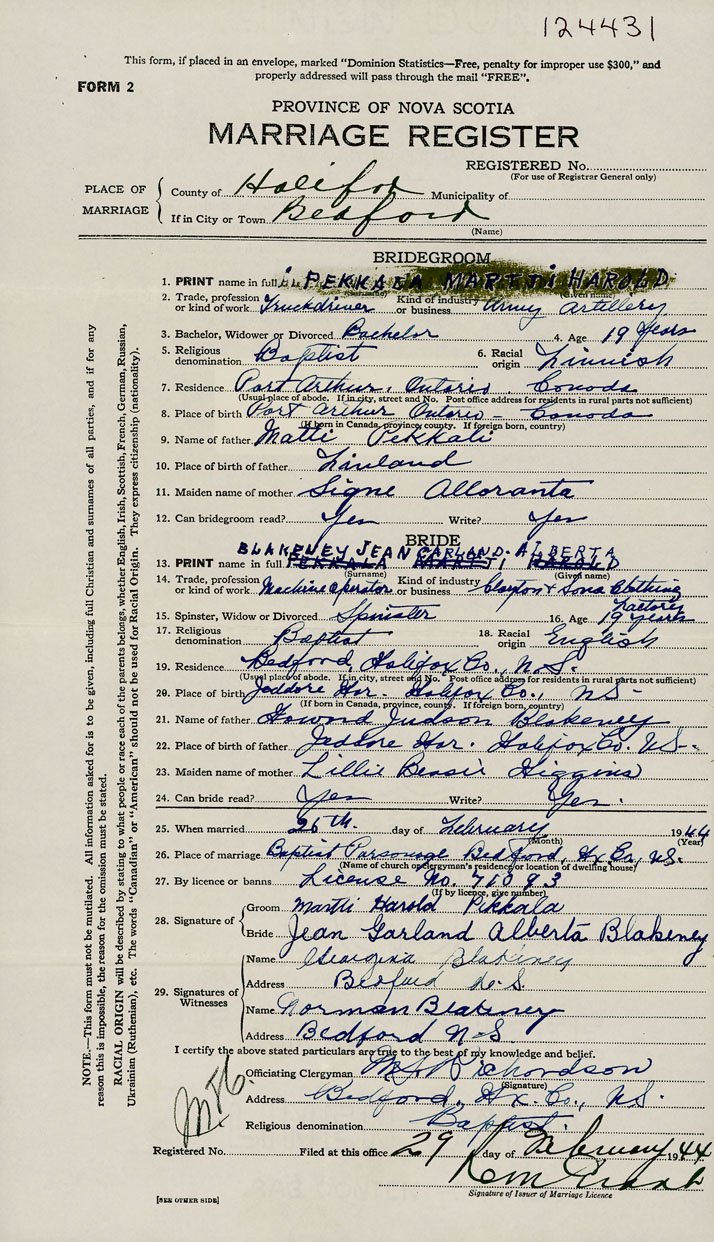 124431
This form, if placed in an envelope, marked “Dominion Statistics—Free, penalty for improper use $300,” and
properly addressed will pass through the mail “FREE”.
FORM 2
PROVINCE OF NOVA SCOTIA
MARRIAGE REGISTER
REGISTERED No.
(For use of Registrar General only)
PLACE OF MARRIAGE
County of Halifax Municipality of
If in City or Town Bedford
(Name)
BRIDEGROOM
1. PRINT name in full PEKKALA MARTTI HAROLD
(Surname) (Given name)
2. Trade, profession or kind of work Truckdriver Kind of industry or business Army Artillery
3. Bachelor, Widower or Divorced Bachelor 4. Age 19 Years
5. Religious denomination Baptist 6. Racial origin Finnish
7. Residence Port Arthur, Ontario, Canada
(Usual place of abode. If in city, street and No. Post office address for residents in rural parts not sufficient)
8. Place of birth Port Arthur Ontario - Canada
(If born in Canada, province, county. If foreign born, country)
9. Name of father Matti Pekkali
10. Place of birth of father Finland
11. Maiden name of mother Signe Alloranta
12. Can bridegroom read? Yes Write? Yes
BRIDE
BLAKENEY JEAN GARLAND ALBERTA
13. PRINT name in full PEKKALA MARTTI HAROLD
(Surname) (Given name)
14. Trade, profession or kind of work Machine operator Kind of industry or business Clayton & Sons Clothing
Factory
15. Spinster, Widow or Divorced Spinster 16. Age 19 years
17. Religious denomination Baptist 18. Racial origin English
19. Residence Bedford, Halifax Co., N.S.
(Usual place of abode. If in city, street and No. Post office address for residents in rural parts not sufficient)
20. Place of birth Jeddore Hr. Halifax Co., NS -
(If born in Canada, province, county. If foreign born, country)
21. Name of father Howard Judson Blakeney
22. Place of birth of father Jeddore Hr. Halifax Co. NS -
23. Maiden name of mother Lillie Bessie Higgins
24. Can bride read? Yes Write? Yes.
25. When married 26th day of February 1944
(Month) (Year)
26. Place of marriage Baptist Parsonage Bedford, Hx Co, NS.
(Name of church or clergyman's residence or location of dwelling house)
27. By licence or banns License No.
(If by licence, give number)
28. Signature of
Groom Martti Harold Pekkala
Bride Jean Garland Alberta Blakeney
29. Signatures of Witnesses
Name Georgina Blakeney
Address Bedford N.S.
Name Norman Blakeney
Address Bedford N.S.
I certify the above stated particulars are true to the best of my knowledge and belief.
Officiating Clergyman Richardson
(Signature)
Address Bedford, Hx. Co., NS.
Religious denomination Baptist.
Registered No. Filed at this office 29 day of February 1944
Signature of Issuer of Marriage Licence
[SEE OTHER SIDE]
NOTE.—This form must not be mutilated. All information asked for is to be given, including full Christian and surnames of all parties, and if for any
reason this is impossible, the reason for the omission must be stated.
RACIAL ORIGIN will be described by stating to what people or race each of the parents belongs, whether English, Irish, Scottish, French, German, Russian,
Ukrainian (Ruthenian), etc. The words “Canadian” or “American” should not be used for Racial Origin. They express citizenship (nationality).